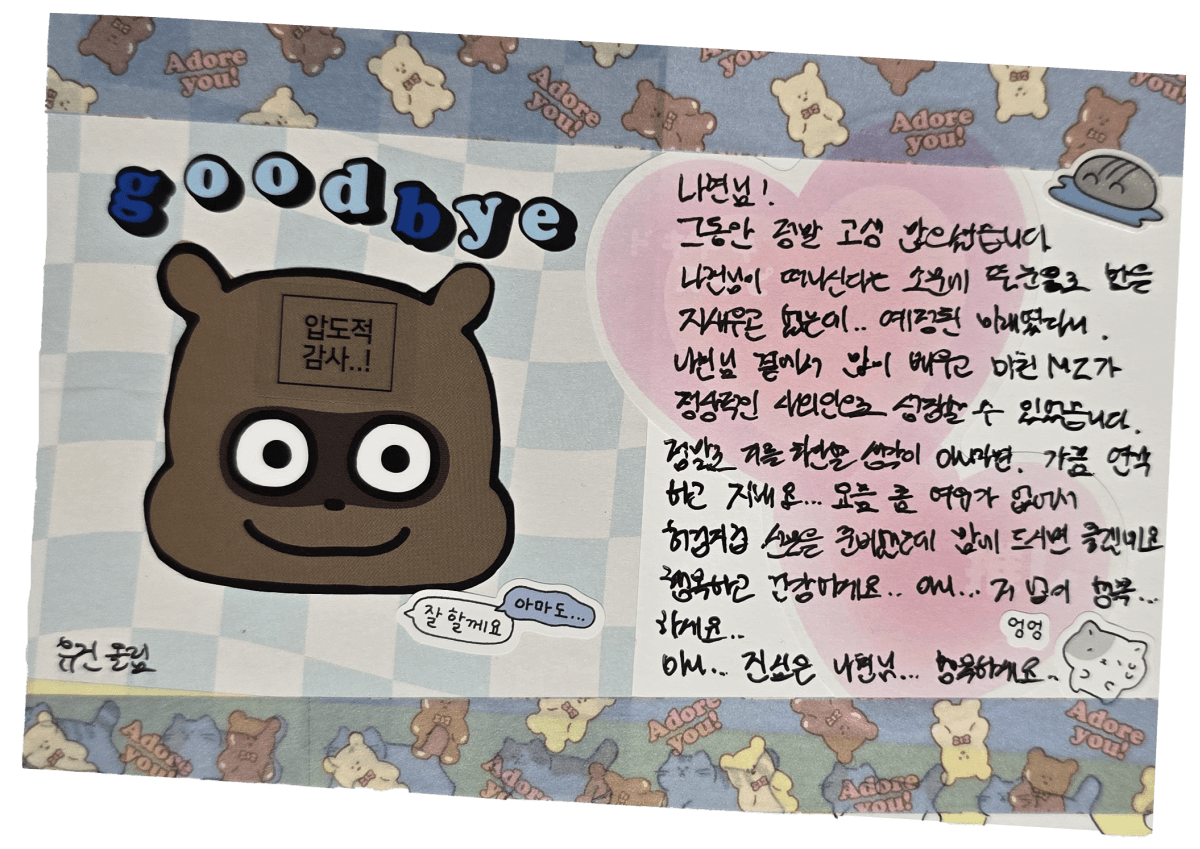 Adore you!
Adore you!
Adore you!
goodbye
압도적
감사..!
잘 할께요
아마도...
유건 올림
나연님!
그동안 정말 고생 많으셨습니다.
나연님이 떠나신다는 소문에 뜬눈으로 밤을
지새우곤 .. 예정된
나연님 곁에서 많이 배우고 MZ가
정상적인 사회인으로 성장할 수 있었습니다.
정말로 저를 차단할 생각이 아니라면, 가끔 연락
하고 지내요... 요즘 좀 여유가 없어서
허겁지겁 선물을 준비했는데 맘에 드시면 좋겠네요
행복하고 건강하세요.. 아니... 저 없이 행복...
하세요..
엉엉
아니... 진심은 나연님... 행복하세요..
Adore you!
Adore you!
Adore you!
Adore you!
Adore you!